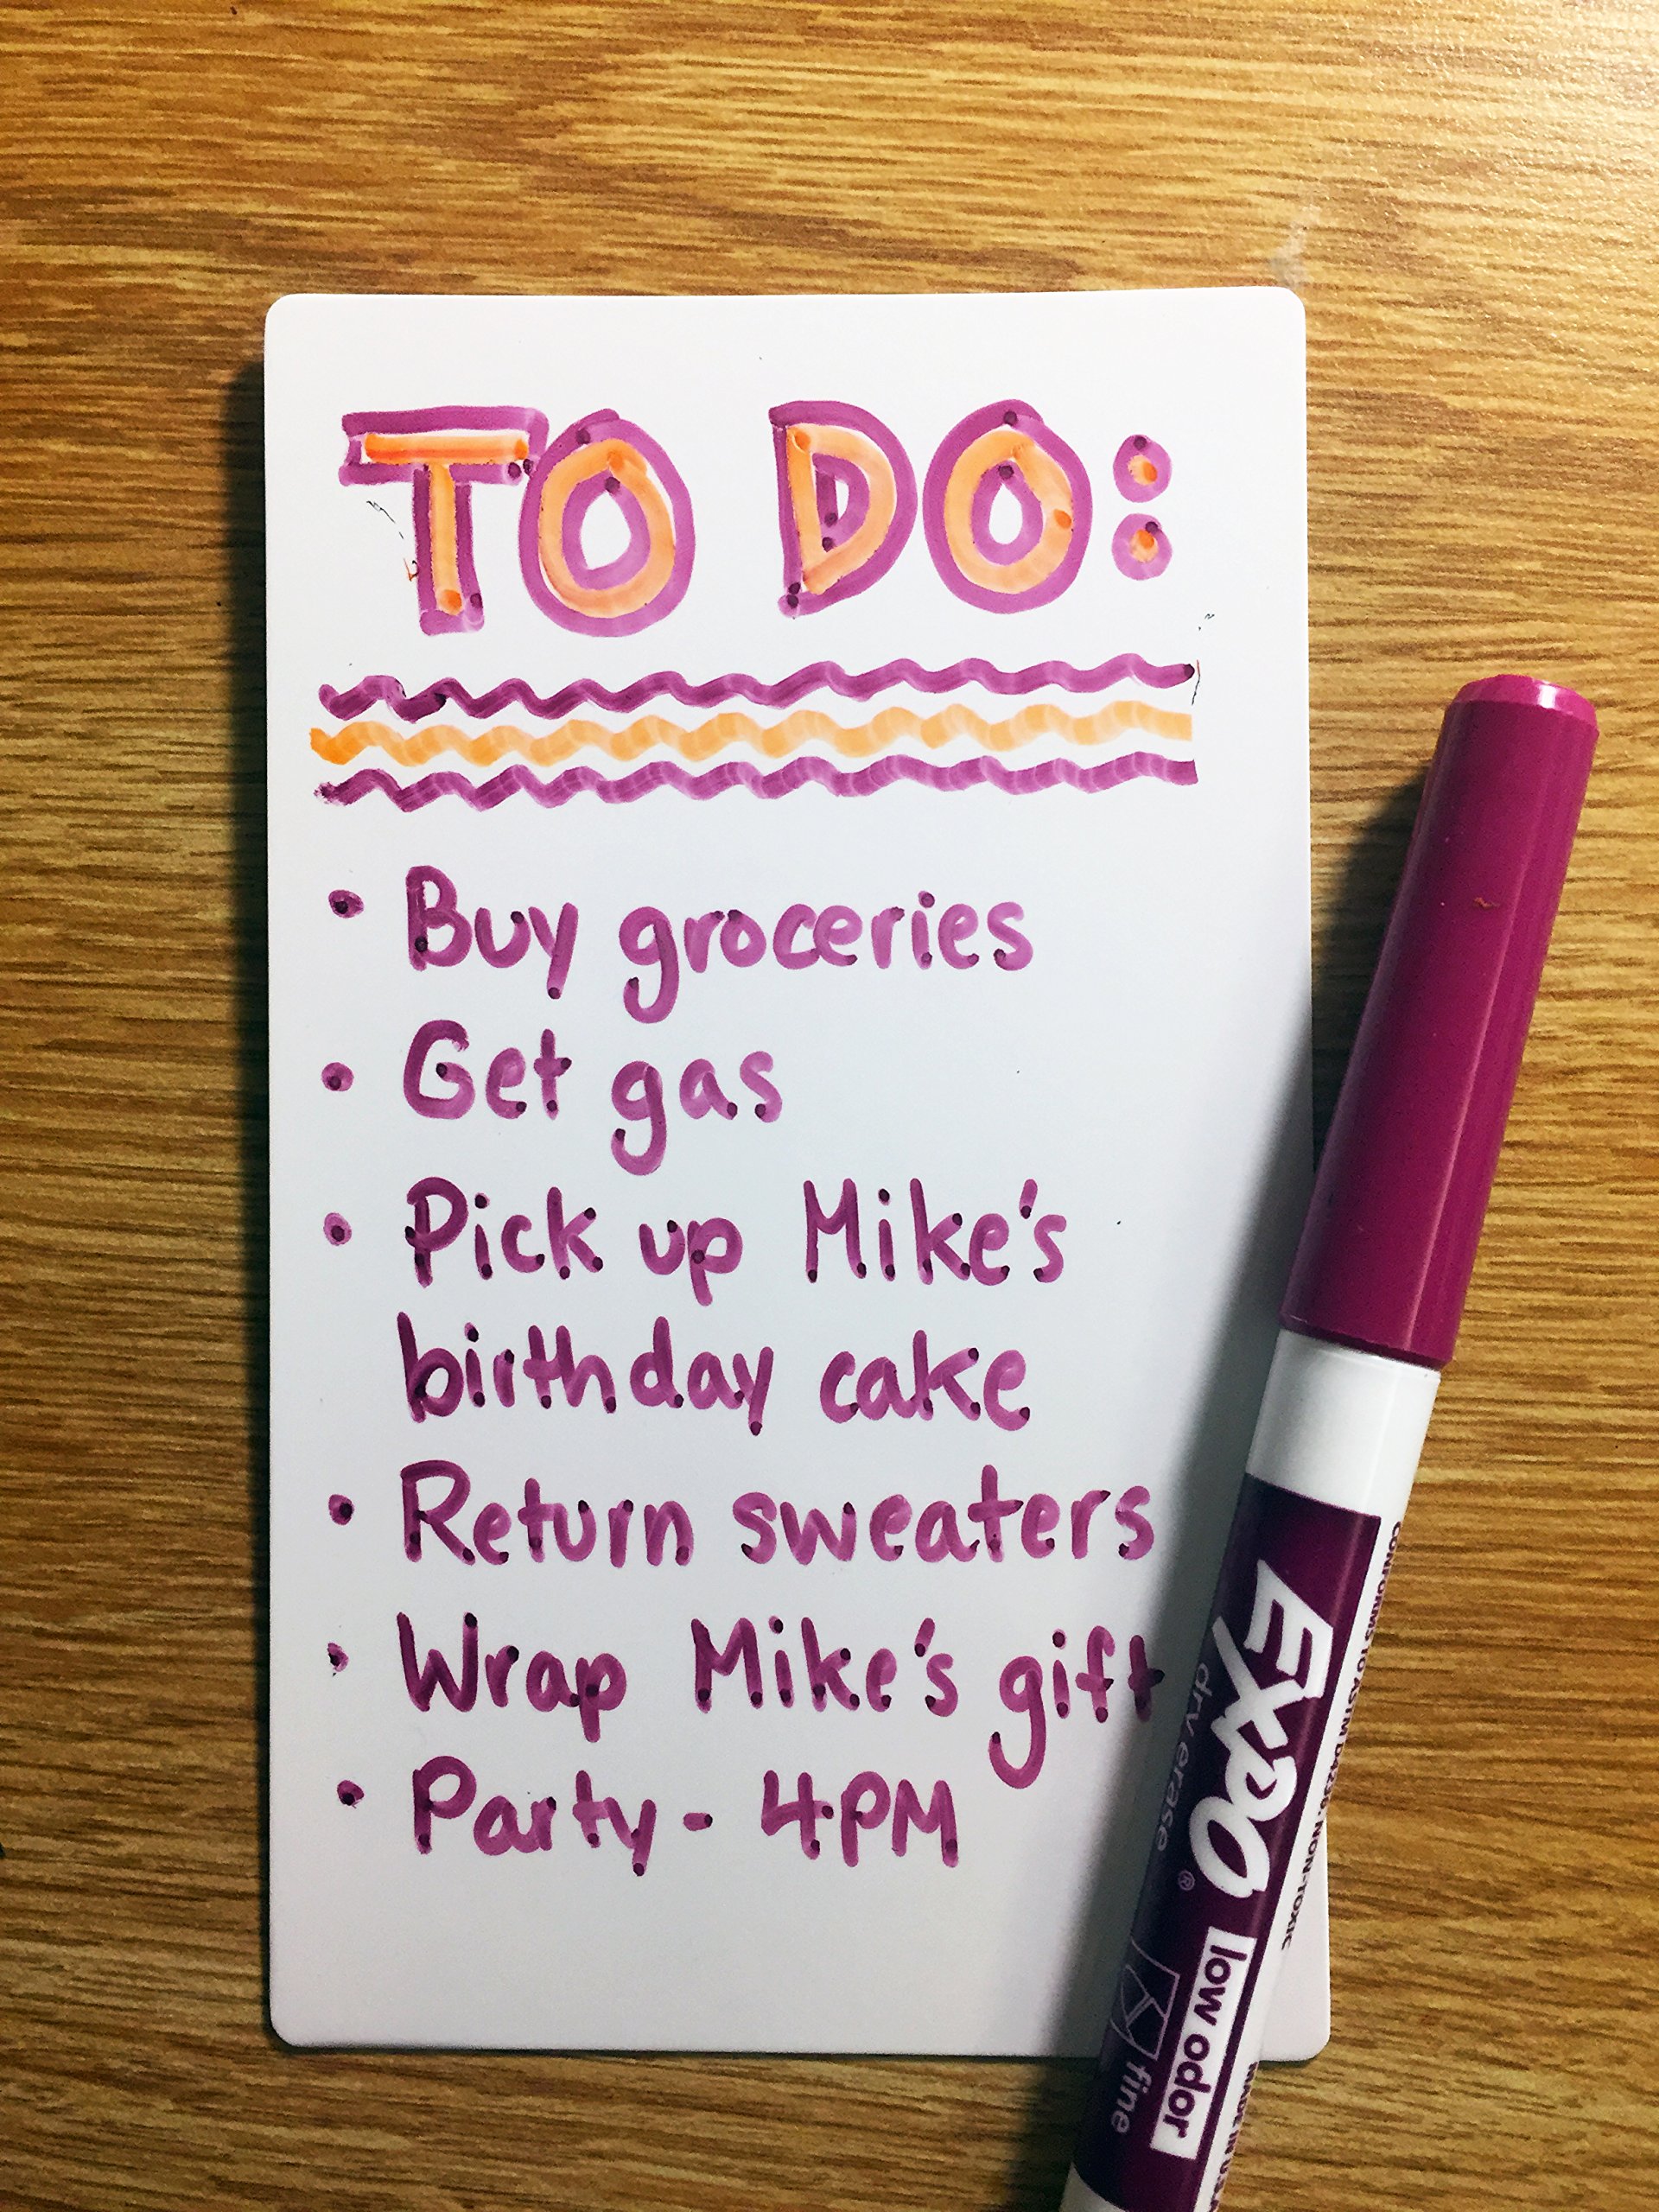 TO DO:
• Buy groceries
• Get gas
• Pick up Mike's
birthday cake
• Return sweaters
• Wrap Mike's gift
• Party - 4PM
EXPO®
dry erase
low odor
fine
CONFORMS TO ASTM D4236. NON-TOXIC
MADE IN